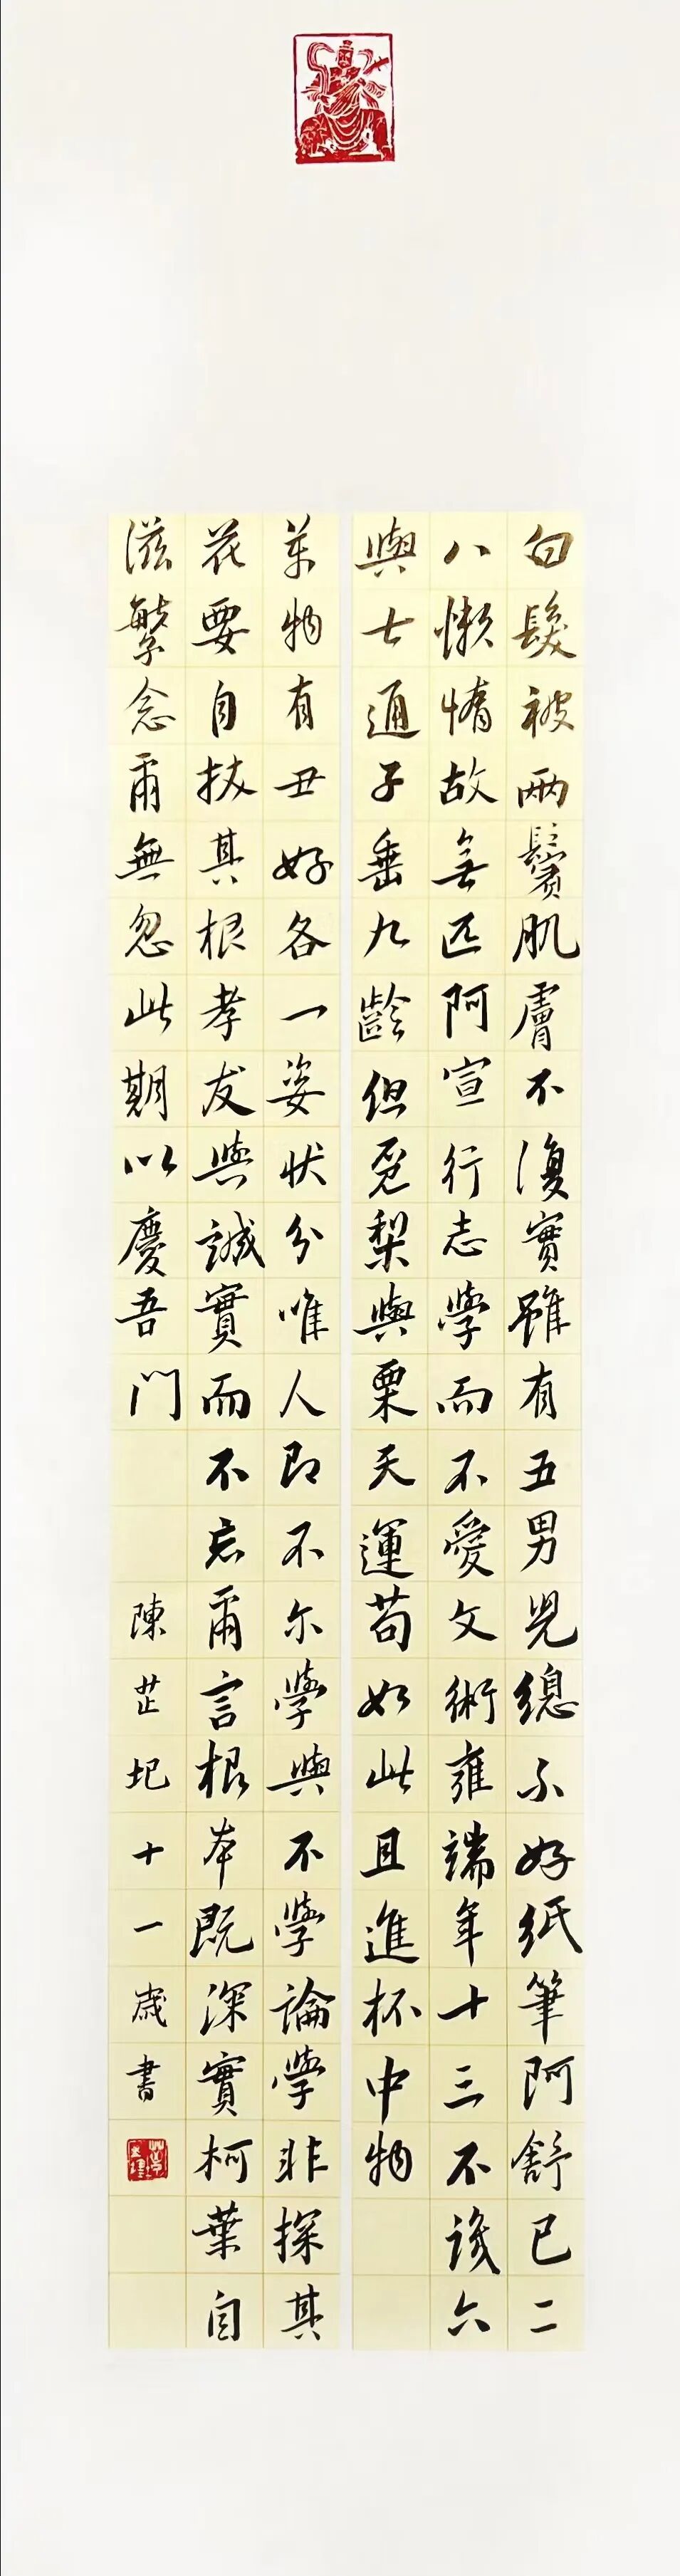 白髮被兩鬢肌膚不復實雖有五男兒總不好紙筆阿舒已二
八懶惰故無匹阿宣行志學而不愛文術雍端年十三不識六
與七通子垂九齡但覓梨與栗天運苟如此且進杯中物
萬物有丑好各一姿状分唯人即不尔學與不學論學非探其
花要自拔其根孝友與誠實而不忘爾言根本既深實柯葉自
滋繁念爾無忽此期以慶吾門 陳芷圯十一歲書